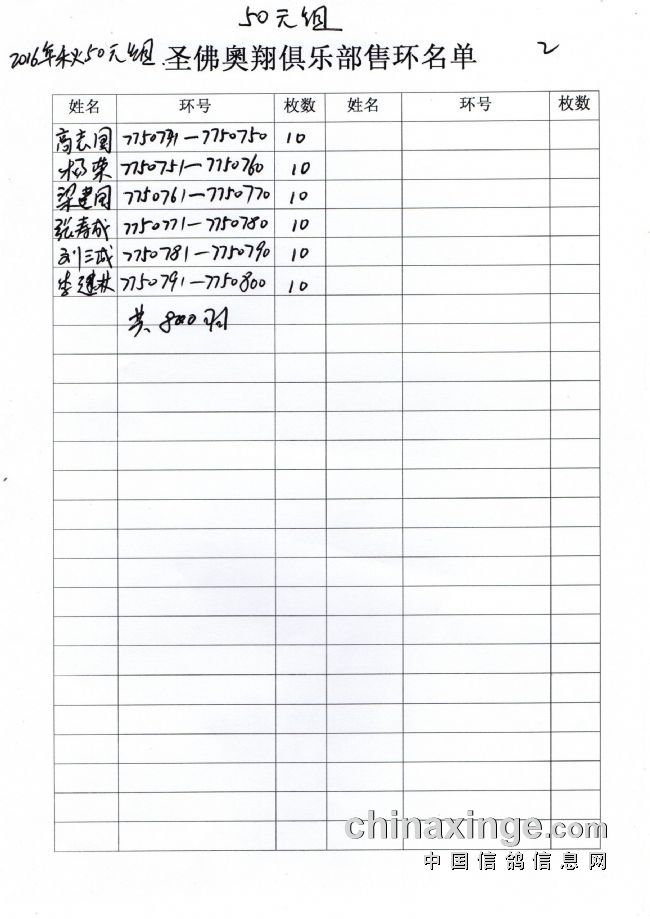 50元组
2016年秋50元组.圣佛奥翔俱乐部售环名单 2
姓名 环号 枚数 姓名 环号 枚数
高志国 7750741—7750750 10
杨荣 7750751—7750760 10
梁建国 7750761—7750770 10
张寿成 7750771—7750780 10
刘三成 7750781—7750790 10
李建林 7750791—7750800 10
共 800 羽
chinaxinge.com
中国信鸽信息网